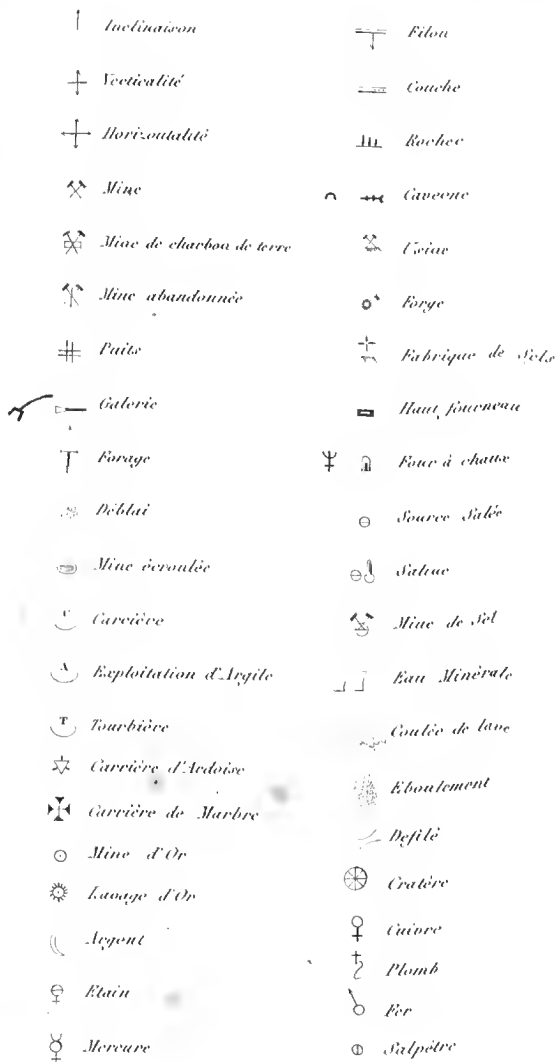 Inclinaison
Verticalité
Horizontalité
Mine
Mine de charbon de terre
Mine abandonnée
Puits
Galerie
Forage
Déblai
Mine écroulée
C
Carrière
A
Exploitation d'Argile
T
Tourbière
Carrière d'Ardoise
Carrière de Marbre
Mine d'Or
Lavage d'Or
Argent
Etain
Mercure
Filon
Couche
Rocher
Caverne
Usine
Forge
Fabrique de Sels
Haut fourneau
Four à chaux
Source Salée
Saline
Mine de Sel
Eau Minérale
Coulée de lave
Eboulement
Defilé
Cratère
Cuivre
Plomb
Fer
Salpêtre